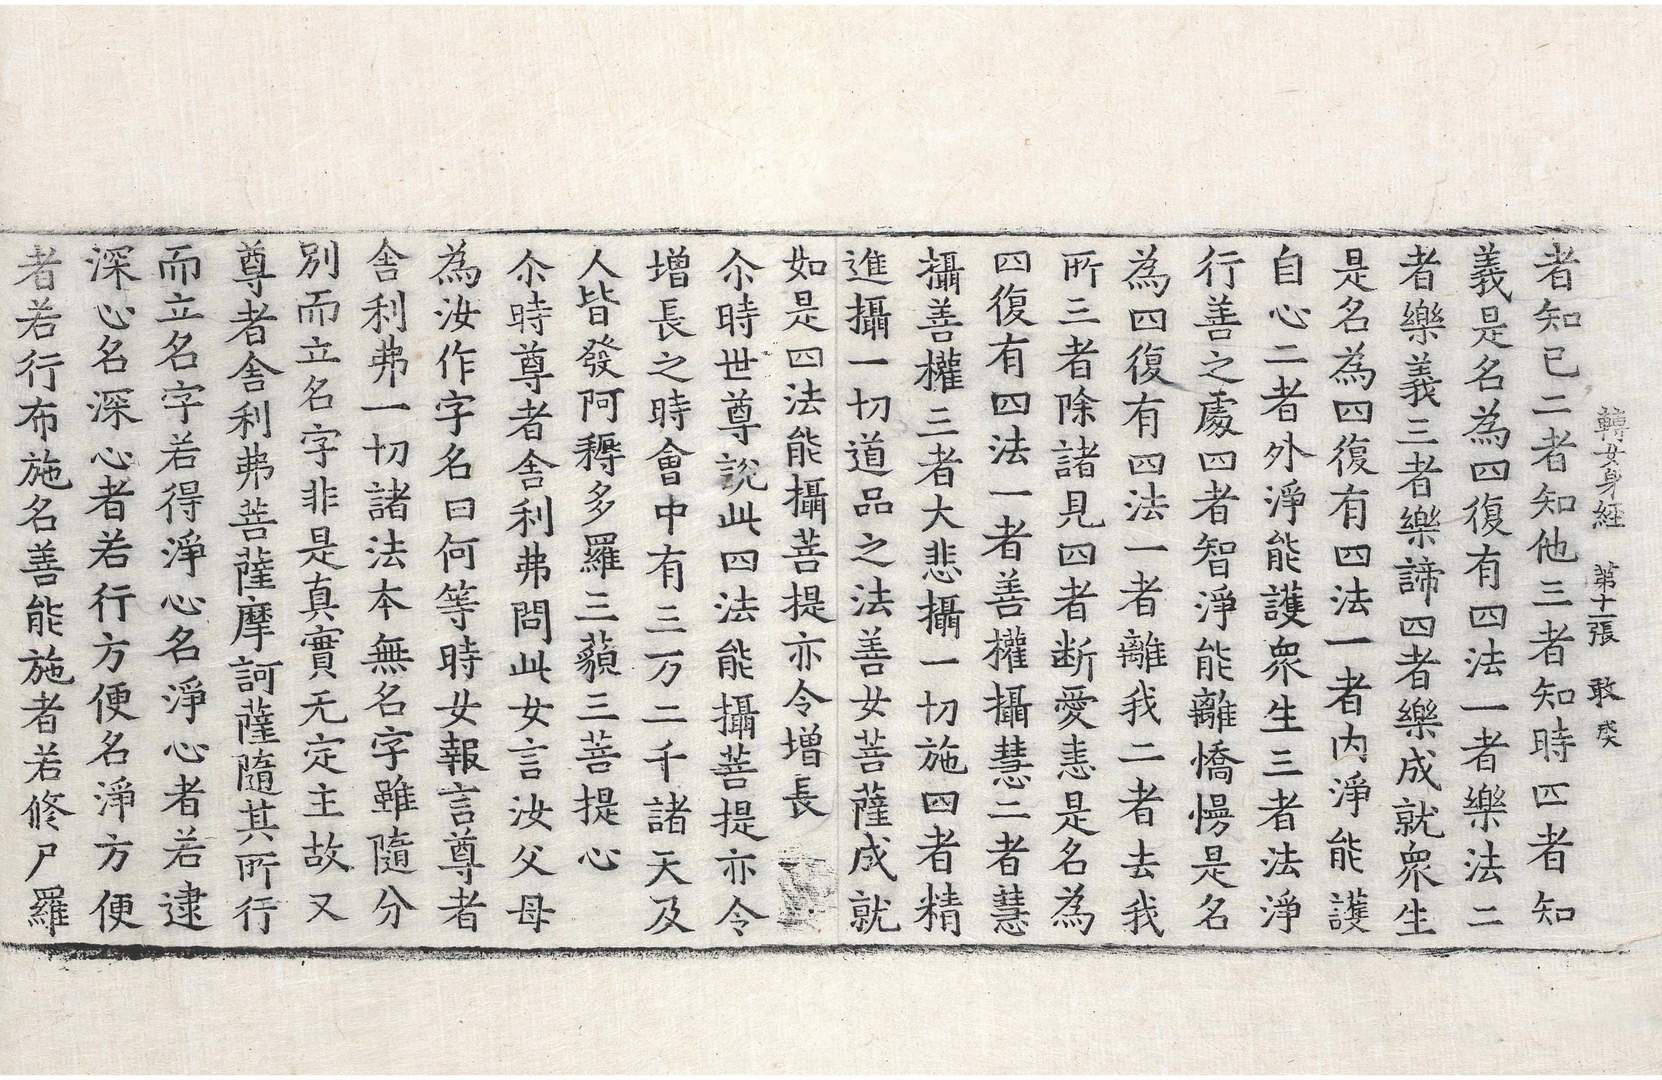 轉女身經 第十二張 敢
者知已二者知他三者知時四者知
義是名為四復有四法一者樂法二
者樂義三者樂諦四者樂成就眾生
是名為四復有四法一者內淨能護
自心二者外淨能護眾生三者法淨
行善之處四者智淨能離憍慢是名
為四復有四法一者離我二者去我
所三者除諸見四者断愛恚是名為
四復有四法一者善權攝慧二者慧
攝善權三者大悲攝一切施四者精
進攝一切道品之法善女菩薩成就
如是四法能攝菩提亦令增長
尒時世尊說此四法能攝菩提亦令
增長之時會中有三万二千諸天及
人皆發阿耨多羅三藐三菩提心
尒時尊者舍利弗問此女言汝父母
為汝作字名曰何等時女報言尊者
舍利弗一切諸法本無名字雖隨分
別而立名字非是真實无定主故又
尊者舍利弗菩薩摩訶薩隨其所行
而立名字若得淨心名淨心者若逮
深心名深心者若行方便名淨方便
者若行布施名善能施者若修尸羅